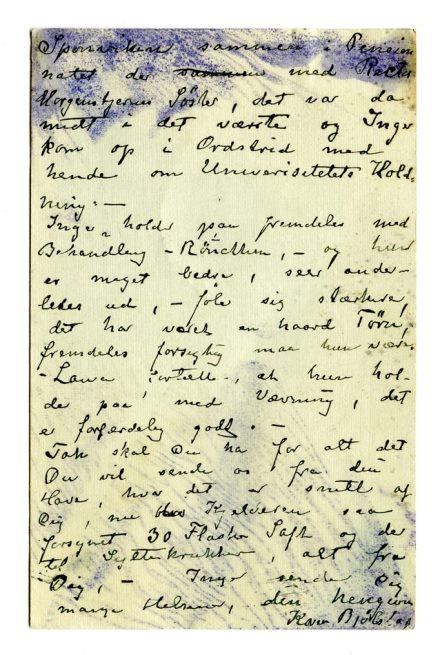 sammen i Pension
natet der med Rector
Morgenstjernes Søster, det var da
midt i det værste og Inger
kom op i Ordstrid med
hende om Universitetets Hold-
ning. —
Inger holder paa fremdeles med
Behandling - Röntchen, - og hun
er meget bedre, seer ander-
ledes ud, - føle sig stærkere,
det har været en haard Törn,
fremdeles forsigtig maa hun være
- Lawa fortalte, at hun hol-
de paa med Vævning, det
er forfærdelig godt. —
Tak skal Du ha for alt det
Du vil sende os fra din
Have, hvor det er snilt af
Dig, nu Kjelderen saa
forsynet 30 Flasker Saft og der
til Sylte krukker, alt fra
Dig, - Inger sender Dig
mange Hilsener, din hengivne
Karen